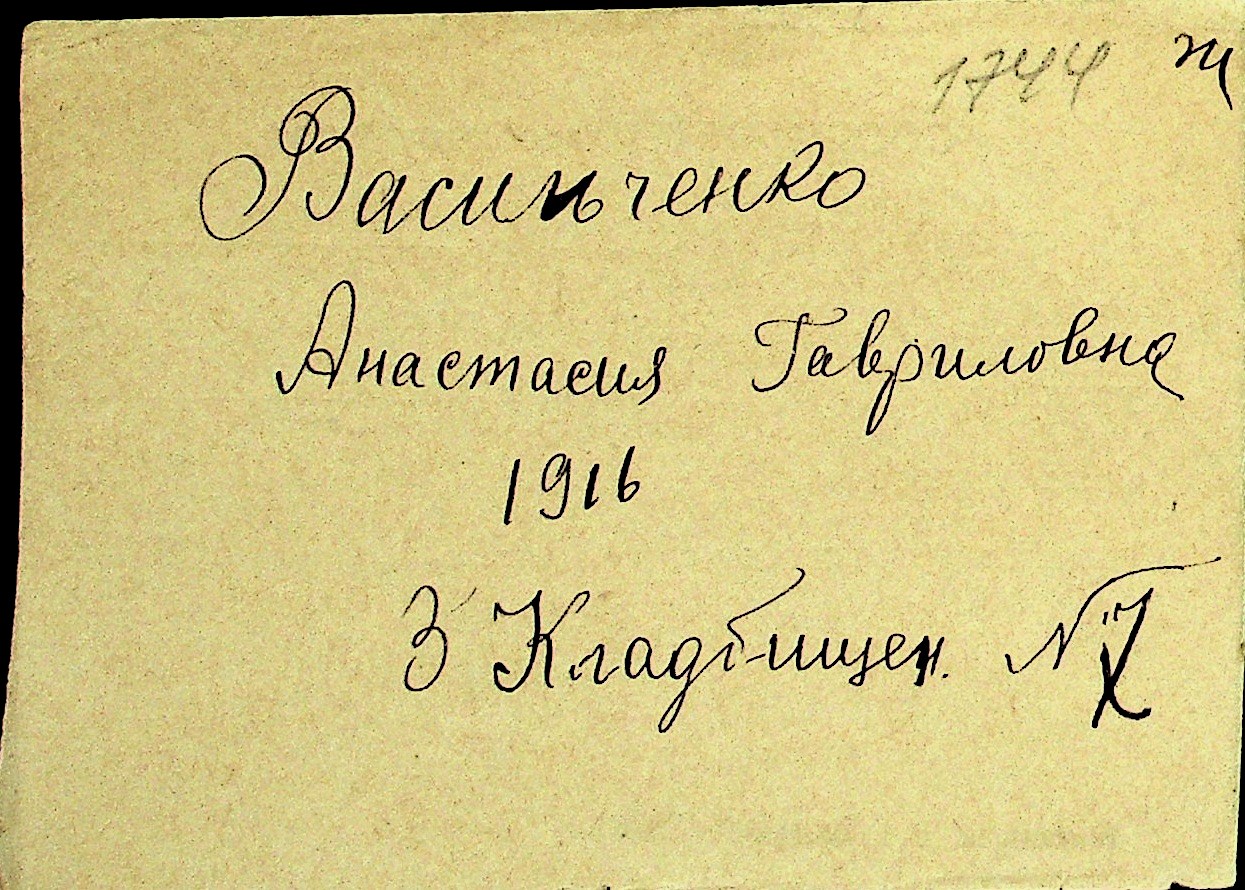 1744
Васильченко
Анастасия Гавриловна
1916
3 Кладбищен. №